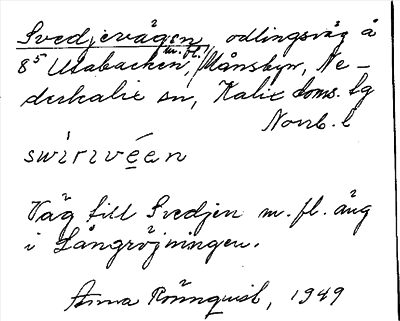 Svedjevägen, odlingsväg å
8⁵ Utabacken, m. fl. / Månsbyn, Ne-
derkalix sn, Kalix doms. tg
Norrb. l
Väg till Svedjen m. fl. äng
i Långröjningen.
Anna Rönnquist, 1949